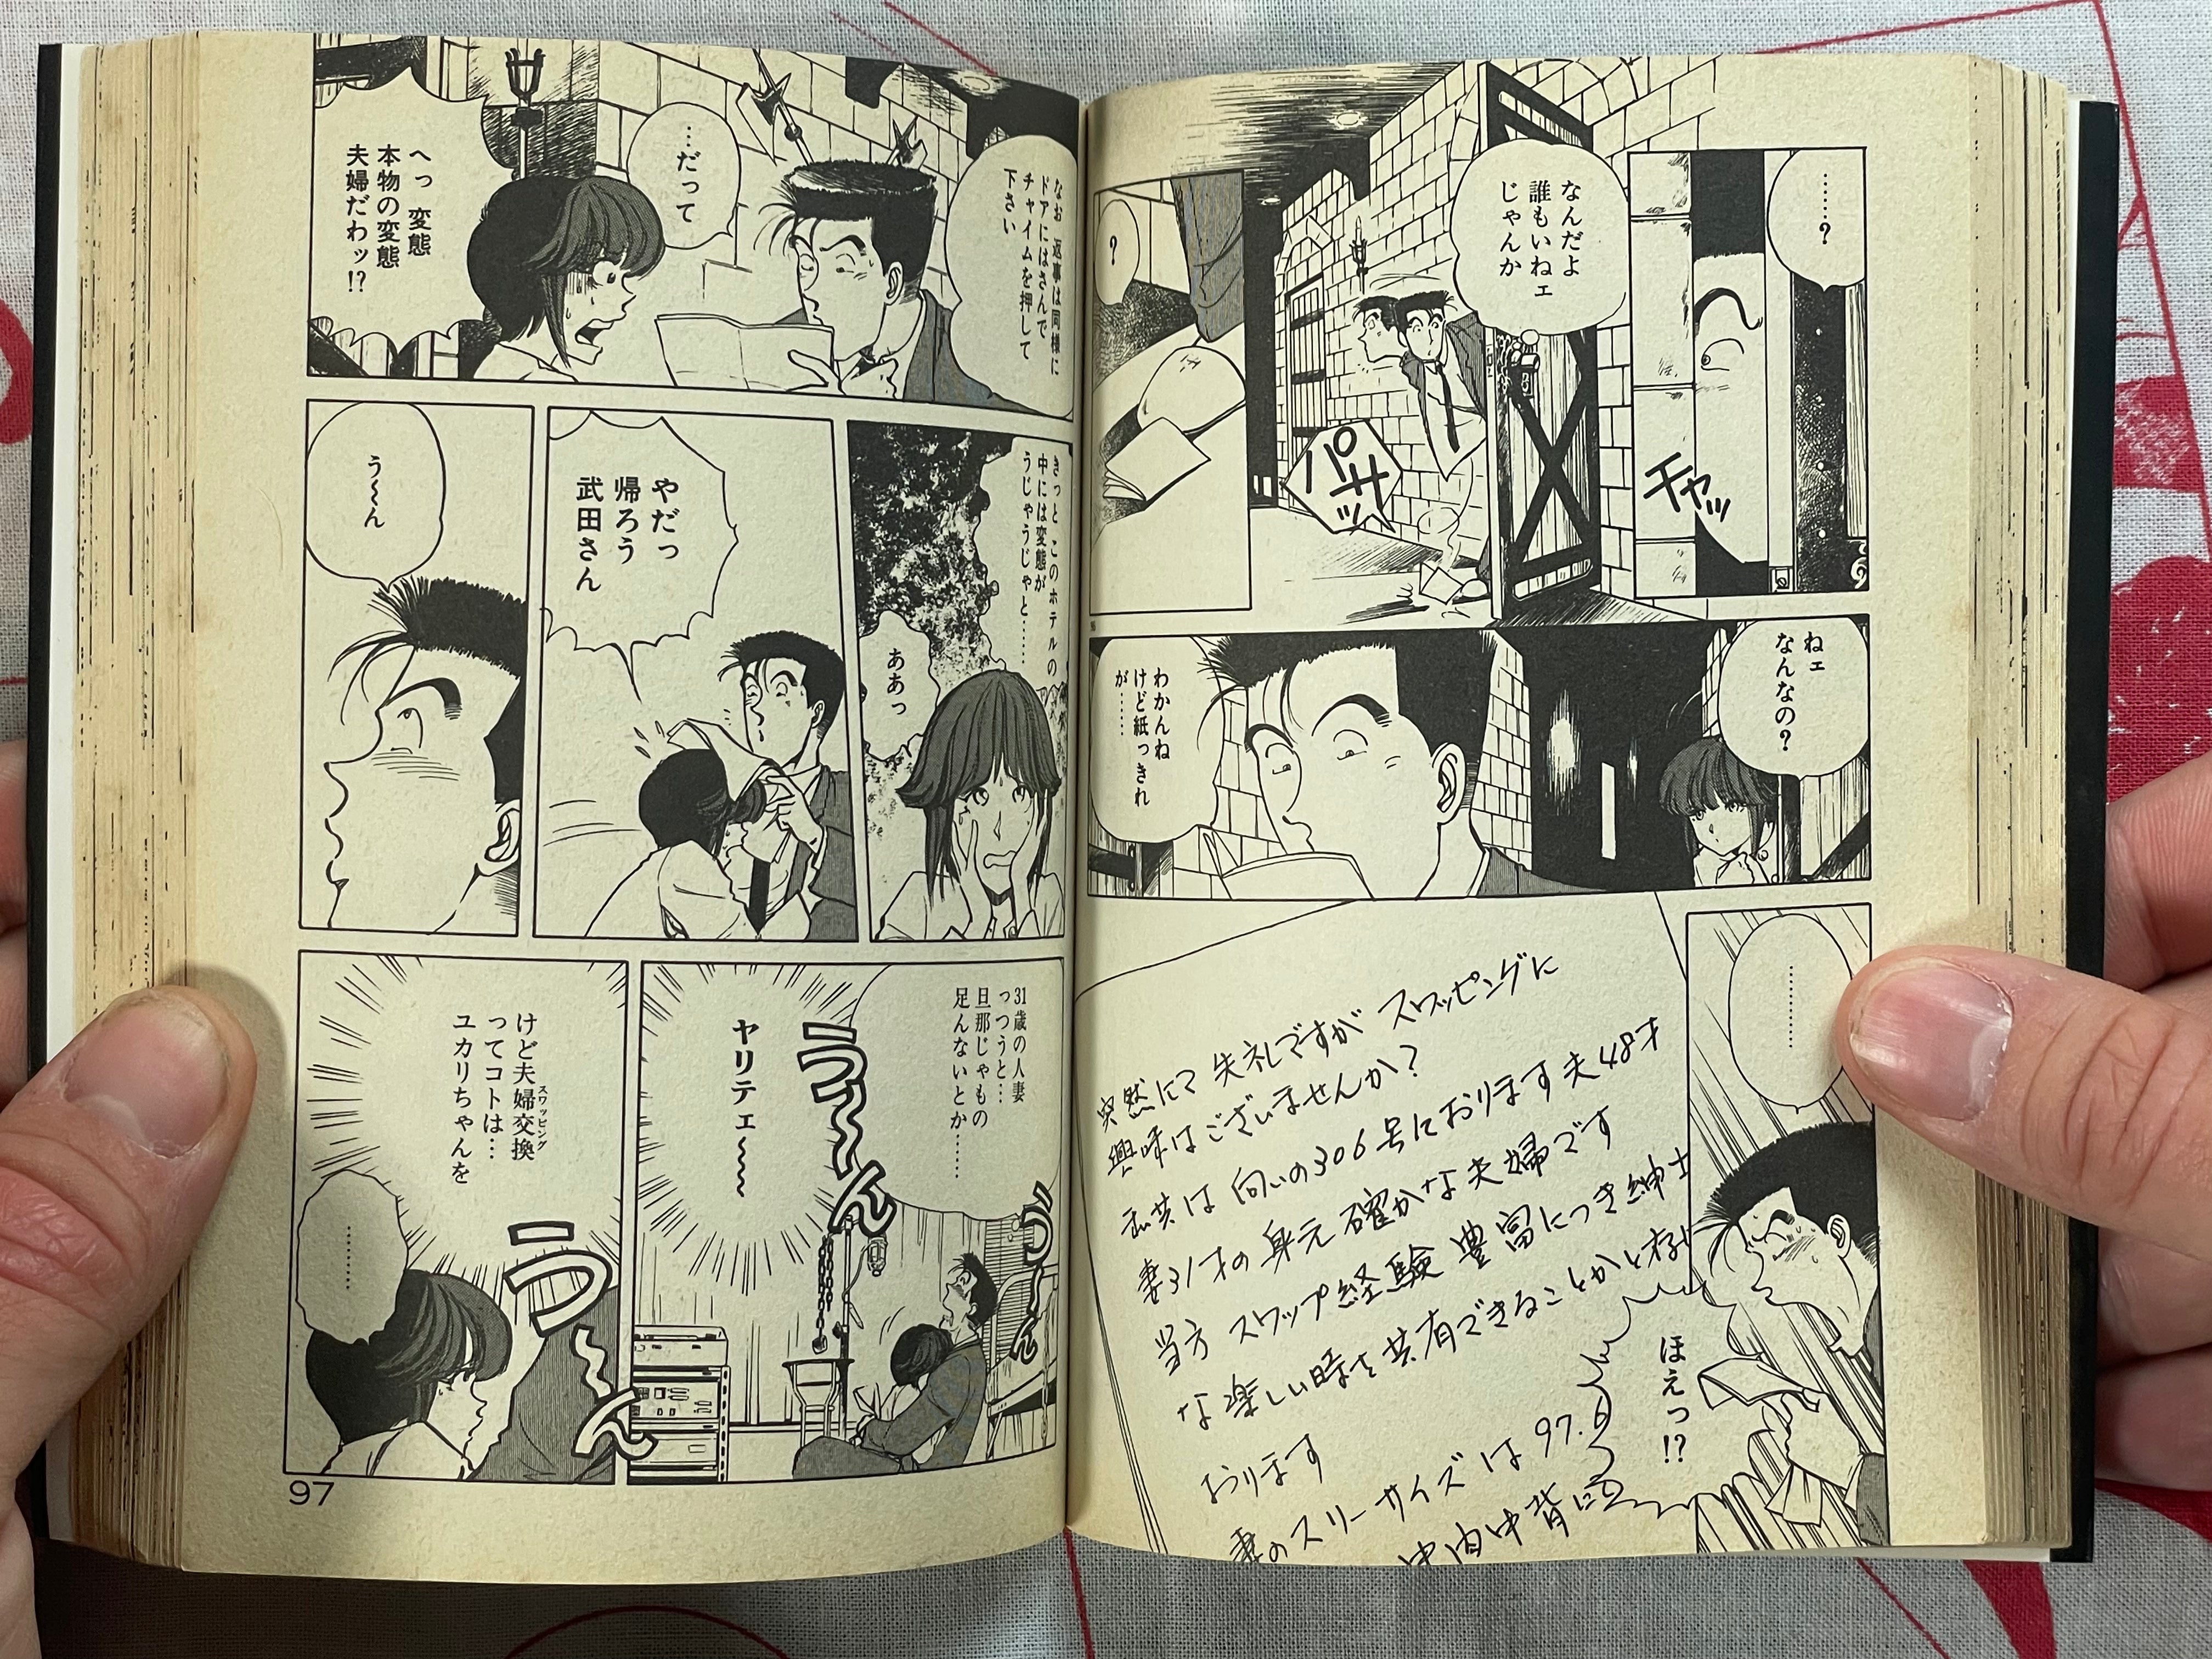 ……?
チャッ
なんだよ
誰もいねェ
じゃんか
パサッ
?
ねェ
なんなの?
わかんね
けど紙っきれ
が……
…………
ほえっ!?
突然にて失礼ですが スワッピングに
興味はございませんか?
私共は 向いの306号におります 夫48才
妻31才の 身元確かな夫婦です
当方 スワップ経験 豊富につき 紳士
な楽しい時を共有できることかと存じ
おります
妻のスリーサイズは 97.6
中肉中背に
なお 返事は同様に
ドアにはさんで
チャイムを押して
下さい
…だって
へっ 変態
本物の変態
夫婦だわッ!?
きっと このホテルの
中には変態が
うじゃうじゃと……
ああっ
やだっ
帰ろう
武田さん
う~~ん
31歳の人妻
っつうと…
旦那じゃもの
足んないとか……
う~~ん
う~~ん
ヤリテェ~~~
けど夫婦交換
スワッピング
ってコトは…
ユカリちゃんを
う~~ん
………
97